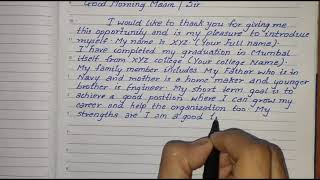 Good Morning Maam / Sir
I would like to thank you for giving me
this opportunity and is my pleasure to introduce
myself. My name is XYZ (Your full name).
I have completed my graduation in Mumbai
itself from XYZ college (Your college Name).
My family member includes My Father who is in
Navy and mother is a home maker and younger
brother is Engineer. My short term goal is to
achieve a good position where I can grow my
career and help the organization too. My
strengths are I am a good t